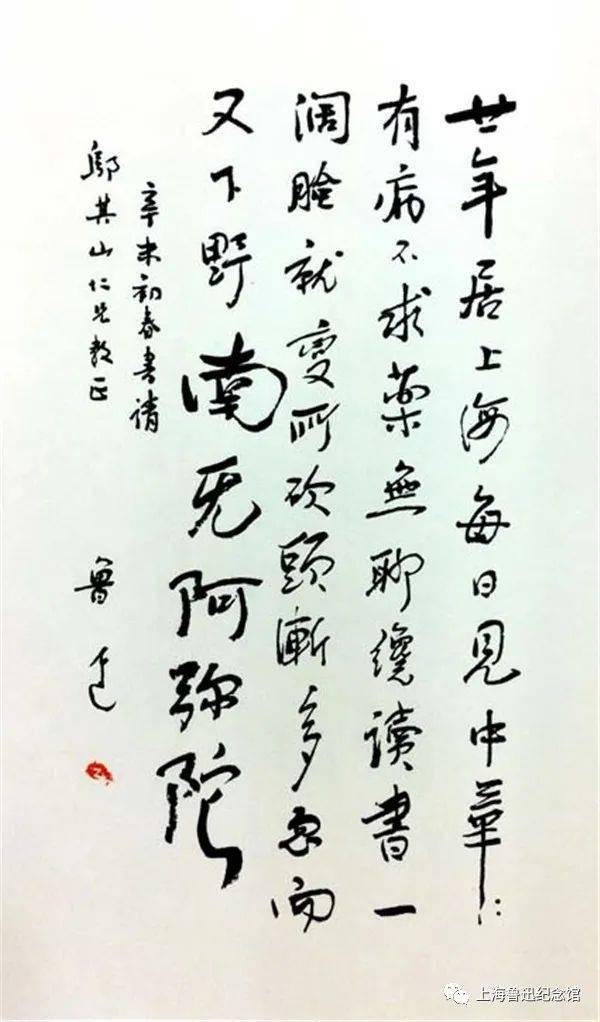 廿年居上海每日見中華
有病不求藥無聊纔讀書一
阔臉就變所砍頭漸多忽而
又下野南无阿弥陀
辛未初春書請
鄔其山仁兄教正
魯迅
上海鲁迅纪念馆